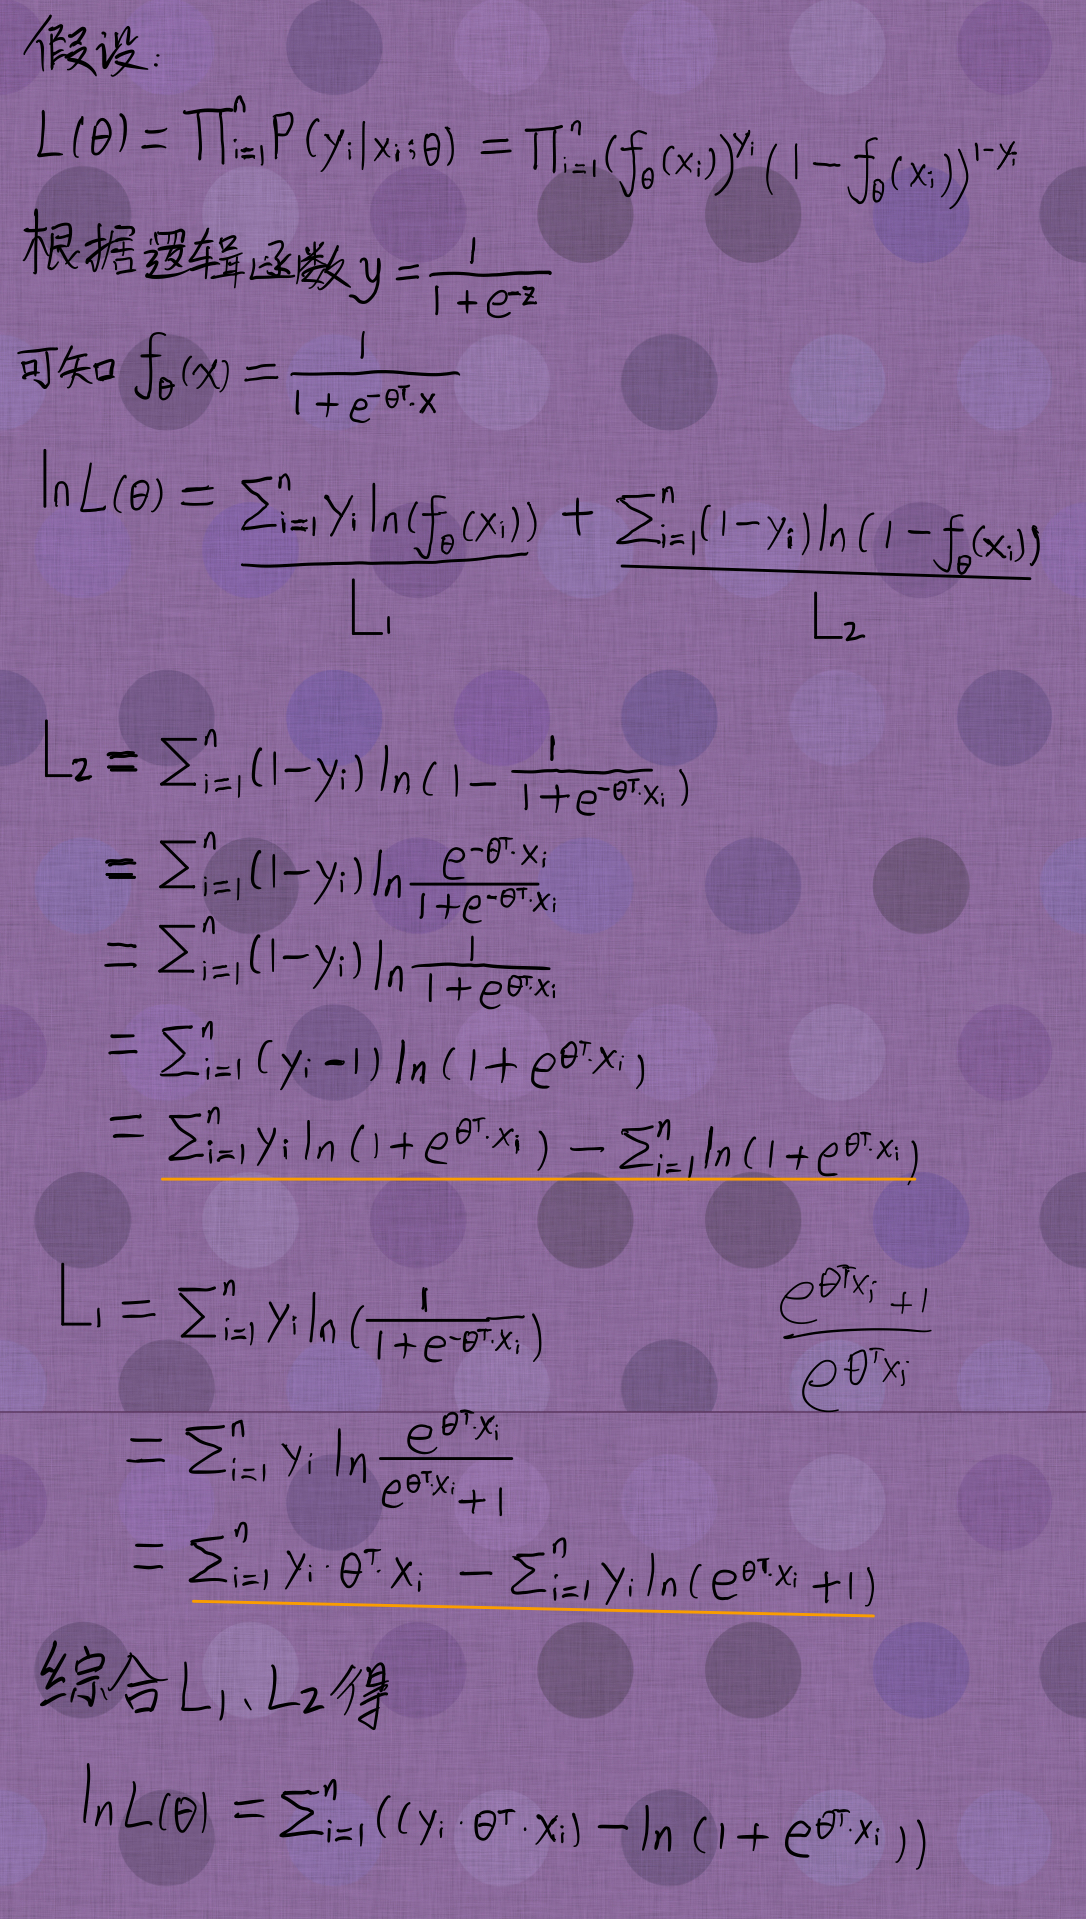 假设:
L(θ) = ∏ⁿᵢ₌₁ P(yᵢ|xᵢ;θ) = ∏ⁿᵢ₌₁ (f_θ(xᵢ))^{yᵢ} (1 - f_θ(xᵢ))^{1-yᵢ}
根据逻辑函数 y = \frac{1}{1 + e^{-z}}
可知 f_θ(x) = \frac{1}{1 + e^{-θ^T·x}}
ln L(θ) = ∑ⁿᵢ₌₁ yᵢ ln(f_θ(xᵢ)) + ∑ⁿᵢ₌₁ (1-yᵢ) ln(1 - f_θ(xᵢ))
L₁ L₂
L₂ = ∑ⁿᵢ₌₁ (1-yᵢ) ln(1 - \frac{1}{1+e^{-θ^T·xᵢ}})
= ∑ⁿᵢ₌₁ (1-yᵢ) ln \frac{e^{-θ^T·xᵢ}}{1+e^{-θ^T·xᵢ}}
= ∑ⁿᵢ₌₁ (1-yᵢ) ln \frac{1}{1+e^{θ^T·xᵢ}}
= ∑ⁿᵢ₌₁ (yᵢ-1) ln(1+e^{θ^T·xᵢ})
= ∑ⁿᵢ₌₁ yᵢ ln(1+e^{θ^T·xᵢ}) - ∑ⁿᵢ₌₁ ln(1+e^{θ^T·xᵢ})
L₁ = ∑ⁿᵢ₌₁ yᵢ ln(\frac{1}{1+e^{-θ^T·xᵢ}})
\frac{e^{θ^T xᵢ}+1}{e^{θ^T xᵢ}}
= ∑ⁿᵢ₌₁ yᵢ ln \frac{e^{θ^T·xᵢ}}{e^{θ^T·xᵢ}+1}
= ∑ⁿᵢ₌₁ yᵢ·θ^T·xᵢ - ∑ⁿᵢ₌₁ yᵢ ln(e^{θ^T·xᵢ}+1)
综合L₁、L₂得
ln L(θ) = ∑ⁿᵢ₌₁ ((yᵢ·θ^T·xᵢ) - ln(1+e^{θ^T·xᵢ}))